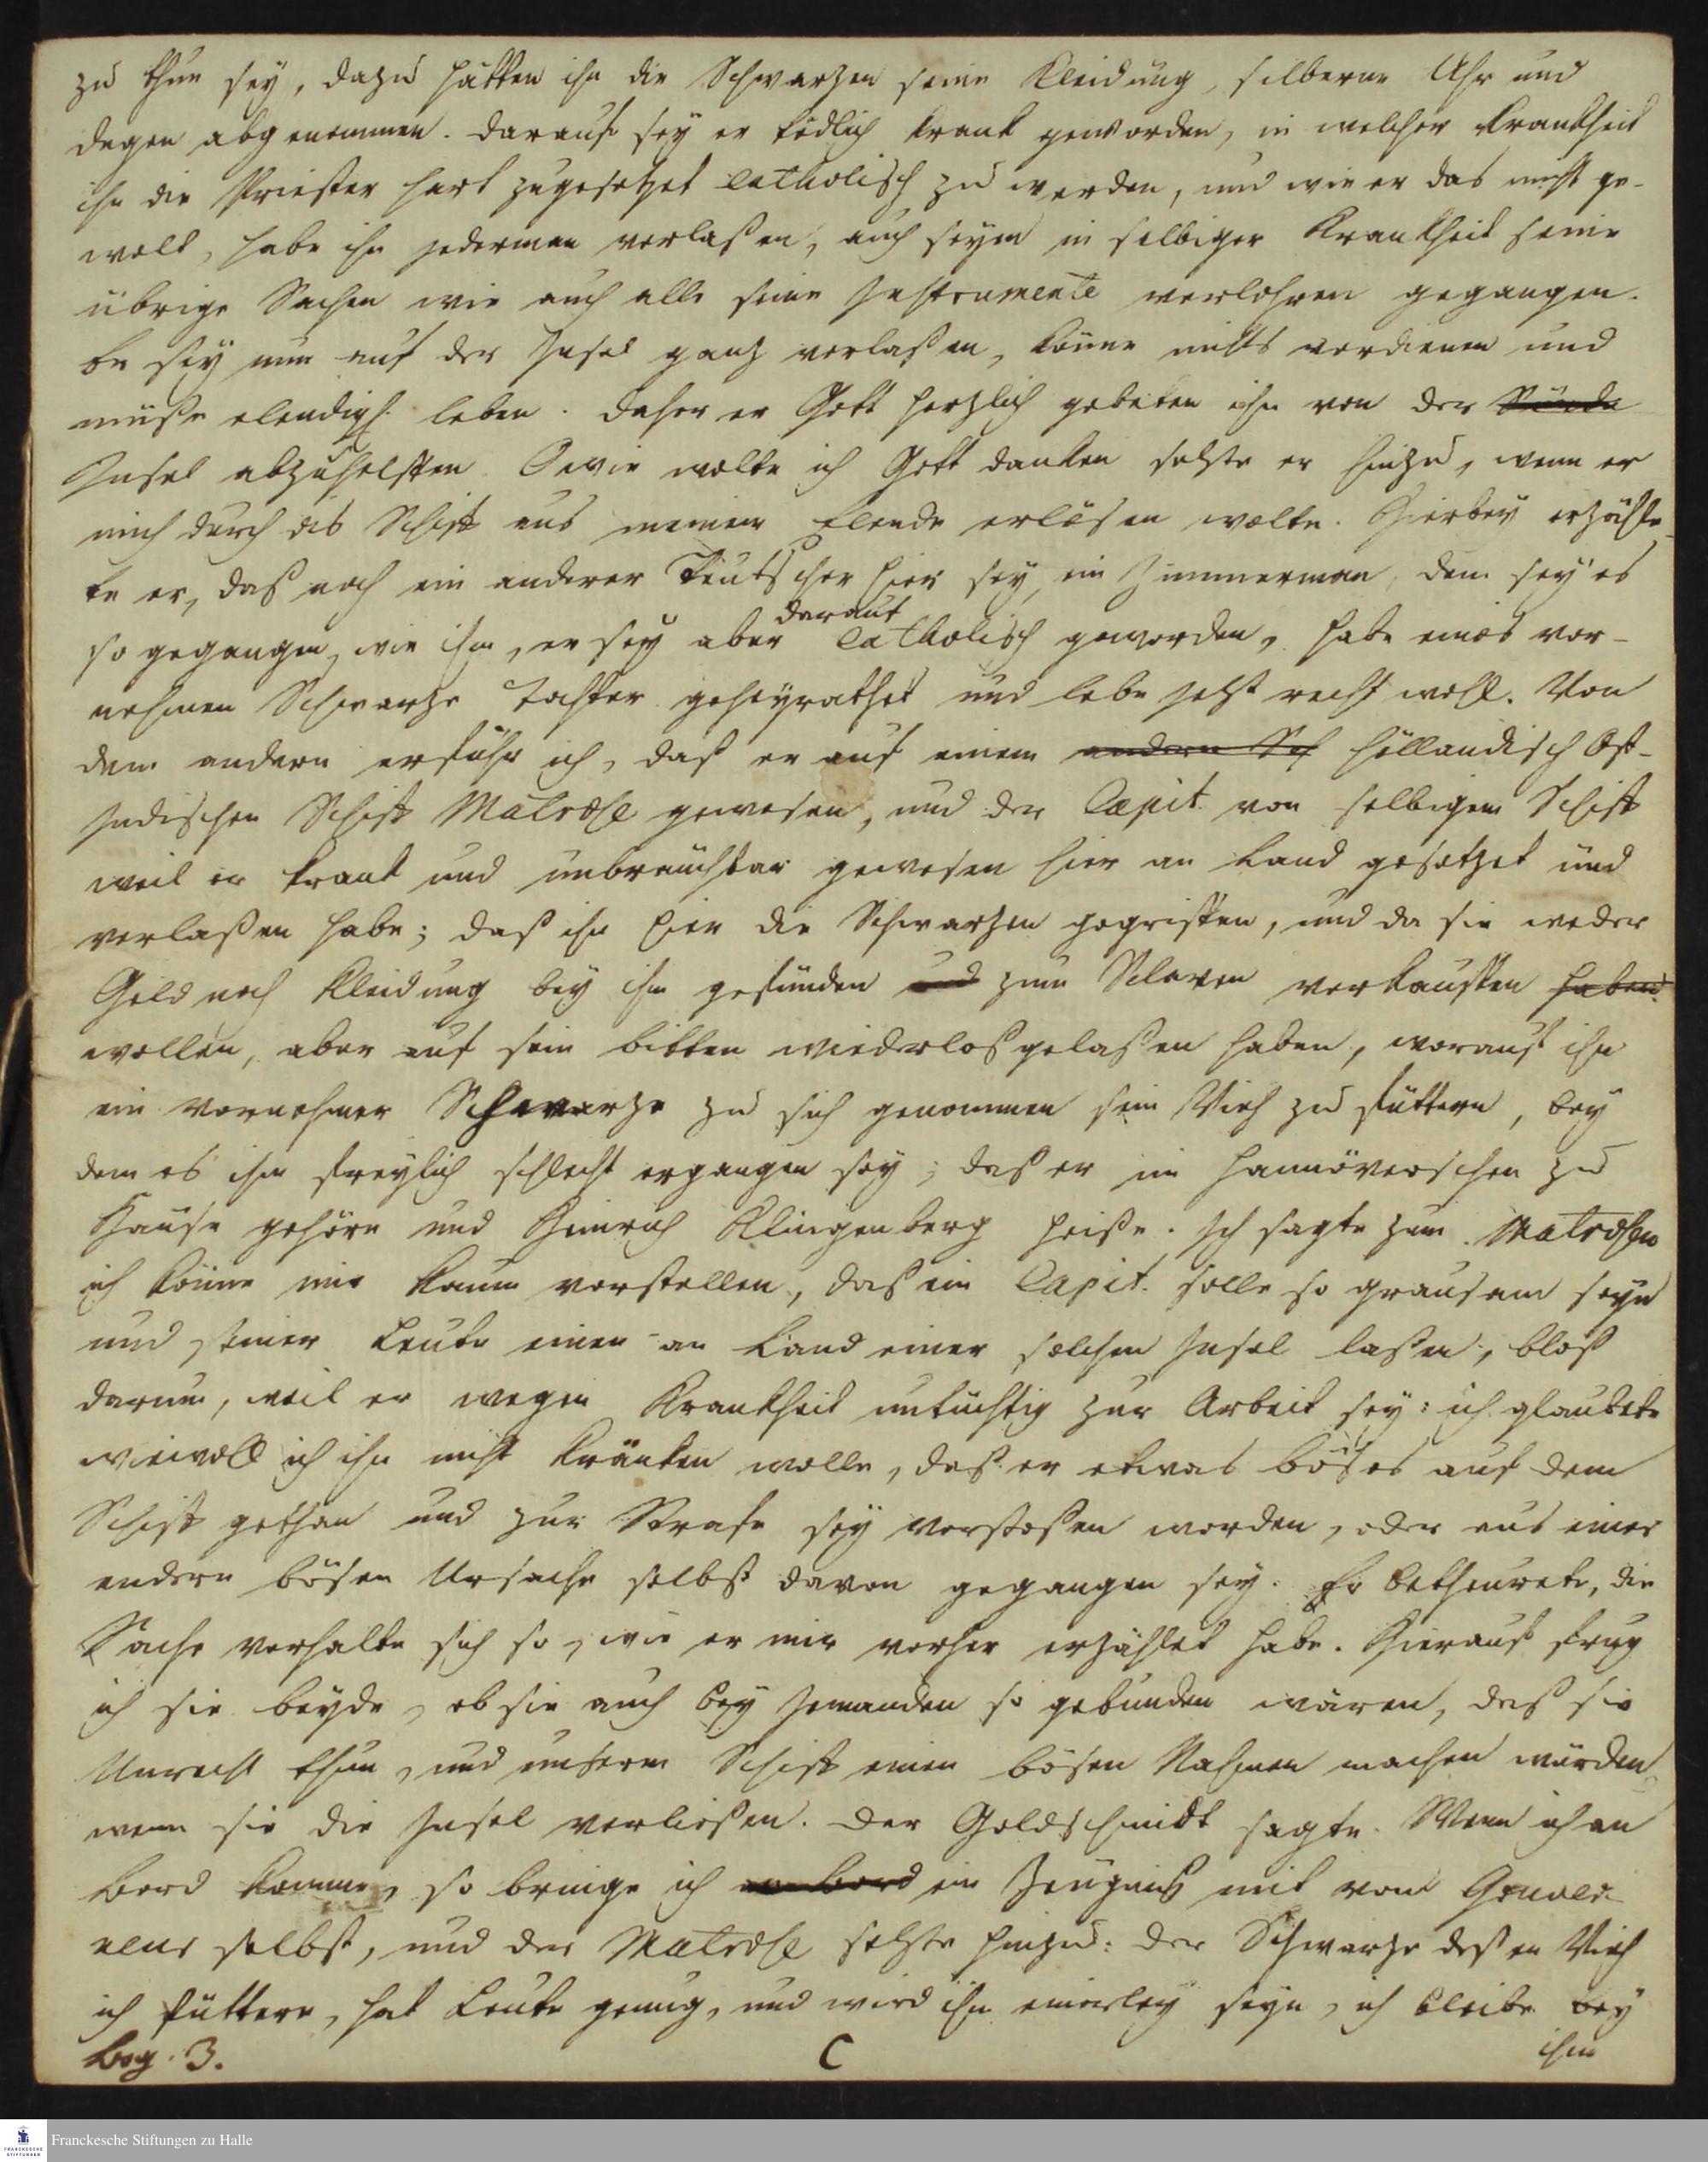 zu thun sey, dazu hätten ihn die Schwarzen seine Kleidung, silberne Uhr und
degen abgenommen. darauf sey er tödlich krank geworden, in welcher Krankheit
ihn die Priester hart zugesetzet catholisch zu werden, und wie er das nicht ge-
wolt, habe ihn jederman verlaßen, auch seyen in selbiger Krankheit seine
übrige Sachen wie auch alle seine Instrumente verlohren gegangen.
Er sey nun auf der Insel ganz verlaßen, könne nichts verdienen und
müße elendigl. leben. daher er Gott herzlich gebeten ihn von der Sünde
Insel abzuhelffen. O wie wolte ich Gott danken setzte er hinzu, wenn er
mich durch dis Schiff aus meinem Elende erlösen wolte. Hierbey erzähle-
te er, daß noch ein anderer Teutscher hier sey, ein Zimmerman, dem sey es
so gegangen, wie ihm, er sey aber darauf catholisch geworden, habe eines vor-
nehmen Schwarze Tochter geheyrathet und lebe jetzt recht wohl. Von
dem andern erfuhr ich, daß er auf einem andern Sch holländisch Ost-
Indischen Schiff Matrose gewesen, und der Capit. von selbigem Schiff
weil er krank und unbrauchbar gewesen hier an Land gesetzet und
verlaßen habe; daß ihn hier die Schwarzen gegriffen, und da sie weder
Geld noch Kleidung bey ihm gefunden und zum Sclaven verkauffen haben
wollen, aber auf sein bitten wiederlosgelaßen haben, worauf ihn
ein vornehmer Schwarze zu sich genommen sein Vieh zu füttern, bey
dem es ihm freylich schlecht ergangen sey; daß er im Hannöverschen zu
Hause gehöre und Hinrich Klingenberg heiße. Ich sagte zum Matrosen
ich könne mir kaum vorstellen, daß ein Capit. solle so grausam seyn
und seiner Leute einen an Land einer solchen Insel laßen, blos
darum, weil er wegen Krankheit untüchtig zur Arbeit sey: ich glaubete
wiewoll ich ihn nicht kränken wolle, daß er etwas böses auf dem
Schiff gethan und zur Strafe sey verstoßen worden, oder aus einer
andern bösen Ursache selbst davon gegangen sey. Er betheurete, die
Sache verhalte sich so, wie er mir vorher erzählet habe. Hierauf frug
ich sie beyde, ob sie auch bey Jemanden so gebunden wären, daß sie
Unrecht thun, und unserm Schiff einen bösen Nahmen machen würden,
wenn sie die Insel verließen. Der Goldschmidt sagte. Wenn ich an
Bord komme, so bringe ich an bord ein Zeugniß mit vom
selbst, und der Matrose setzte hinzu: der Schwarze deßen Vieh
ich füttere, hat Leute genug, und wird ihm einerley seyn, ich bleibe bey
Bog. 3.
C
ihm
Franckesche Stiftungen zu Halle